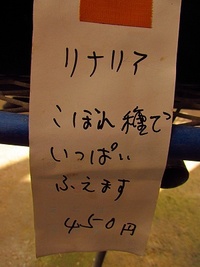 リナリア
こぼれ種で
いっぱい
ふえます
450円